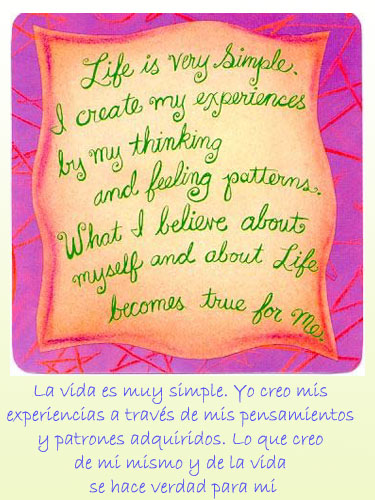 Life is very simple.
I create my experiences
by my thinking
and feeling patterns.
What I believe about
myself and about Life
becomes true for me!
La vida es muy simple. Yo creo mis
experiencias a través de mis pensamientos
y patrones adquiridos. Lo que creo
de mi mismo y de la vida
se hace verdad para mi